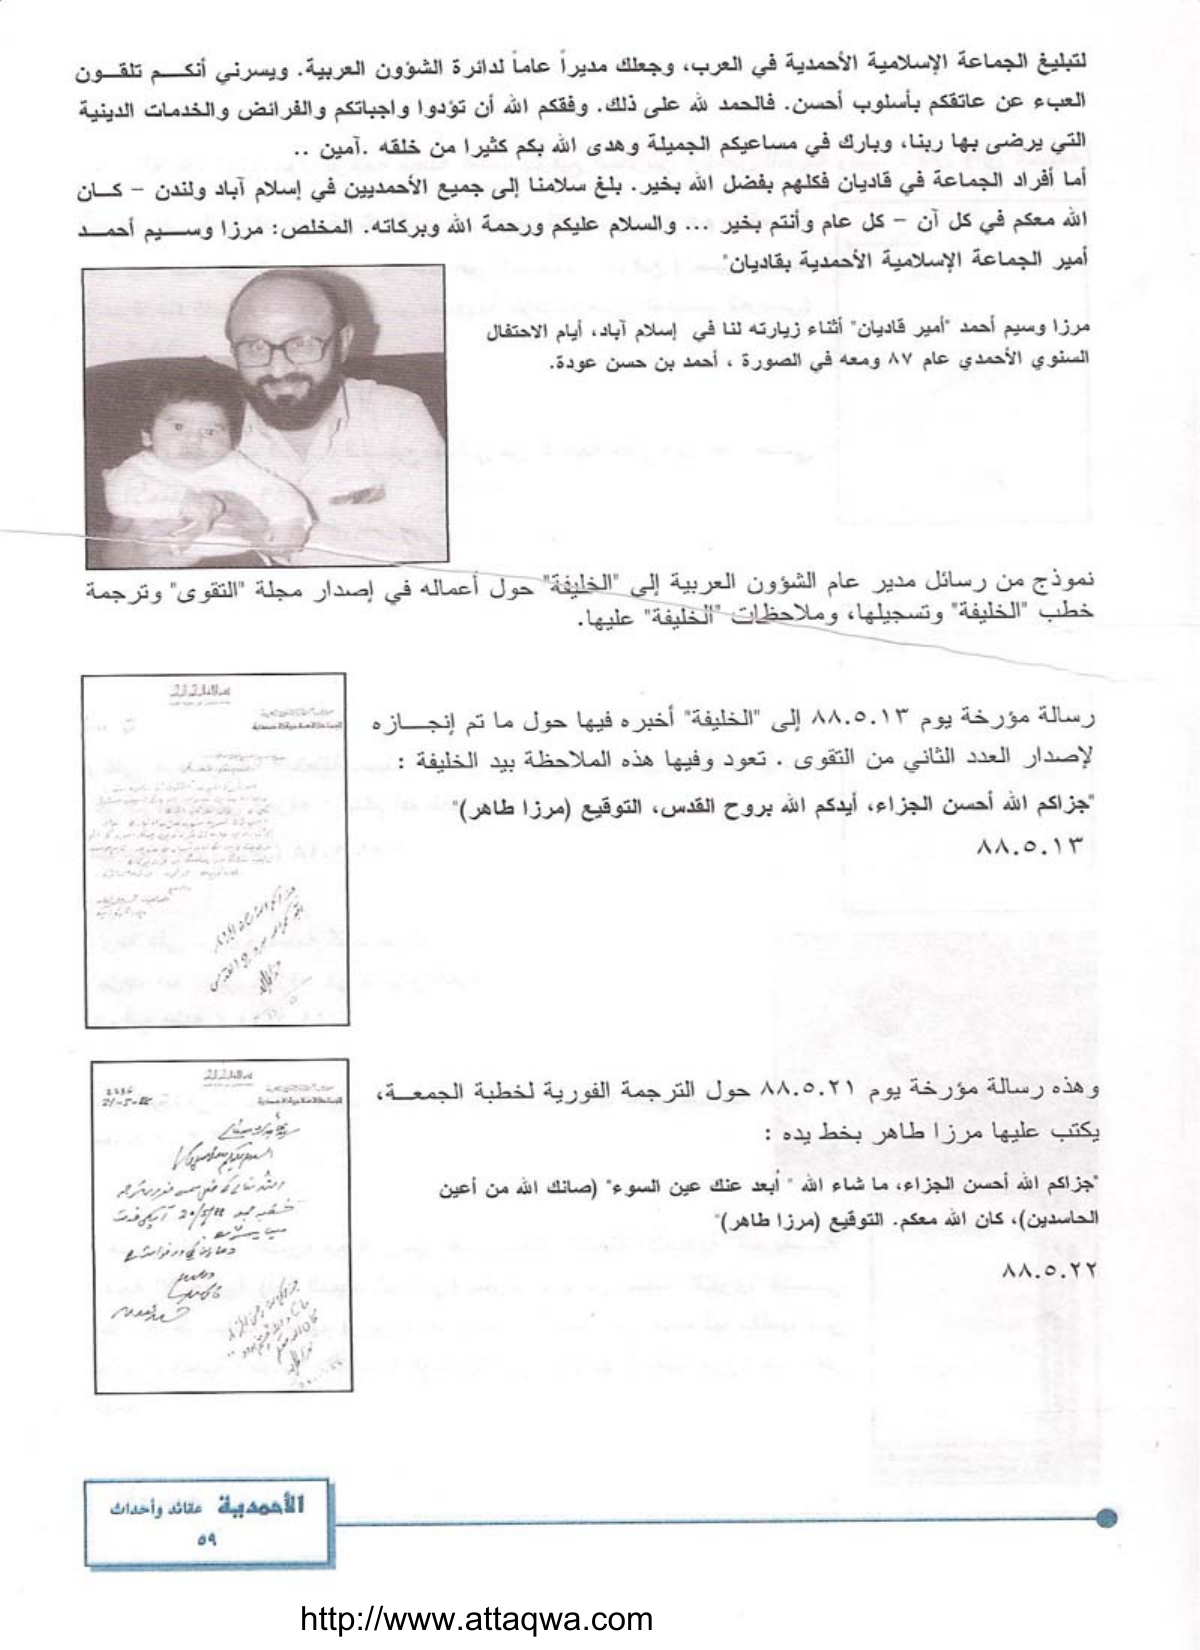 لتبليغ الجماعة الإسلامية الأحمدية في العرب، وجعلك مديراً عاماً لدائرة الشؤون العربية. ويسرني أنكم تلقون
العبء عن عاتقكم بأسلوب أحسن. فالحمد لله على ذلك. وفقكم الله أن تؤدوا واجباتكم والفرائض والخدمات الدينية
التي يرضى بها ربنا، وبارك في مساعيكم الجميلة وهدى الله بكم كثيرا من خلقه .آمين ..
أما أفراد الجماعة في قاديان فكلهم بفضل الله بخير. بلغ سلامنا إلى جميع الأحمديين في إسلام آباد ولندن – كان
الله معكم في كل آن – كل عام وأنتم بخير ... والسلام عليكم ورحمة الله وبركاته. المخلص: مرزا وسيم أحمد
أمير الجماعة الإسلامية الأحمدية بقاديان"
مرزا وسيم أحمد "أمير قاديان" أثناء زيارته لنا في إسلام آباد، أيام الاحتفال
السنوي الأحمدي عام ٨٧ ومعه في الصورة ، أحمد بن حسن عودة.
نموذج من رسائل مدير عام الشؤون العربية إلى "الخليفة" حول أعماله في إصدار مجلة "التقوى" وترجمة
خطب "الخليفة" وتسجيلها، وملاحظات "الخليفة" عليها.
رسالة مؤرخة يوم ٨٨.٥.١٣ إلى "الخليفة" أخبره فيها حول ما تم إنجازه
لإصدار العدد الثاني من التقوى . تعود وفيها هذه الملاحظة بيد الخليفة :
"جزاكم الله أحسن الجزاء، أيدكم الله بروح القدس، التوقيع (مرزا طاهر)"
٨٨.٥.١٣
وهذه رسالة مؤرخة يوم ٨٨.٥.٢١ حول الترجمة الفورية لخطبة الجمعة،
يكتب عليها مرزا طاهر بخط يده :
"جزاكم الله أحسن الجزاء، ما شاء الله " أبعد عنك عين السوء" (صانك الله من أعين
الحاسدين)، كان الله معكم. التوقيع (مرزا طاهر)"
٨٨.٥.٢٢
الأحمدية عقائد وأحداث
٥٩
http://www.attaqwa.com